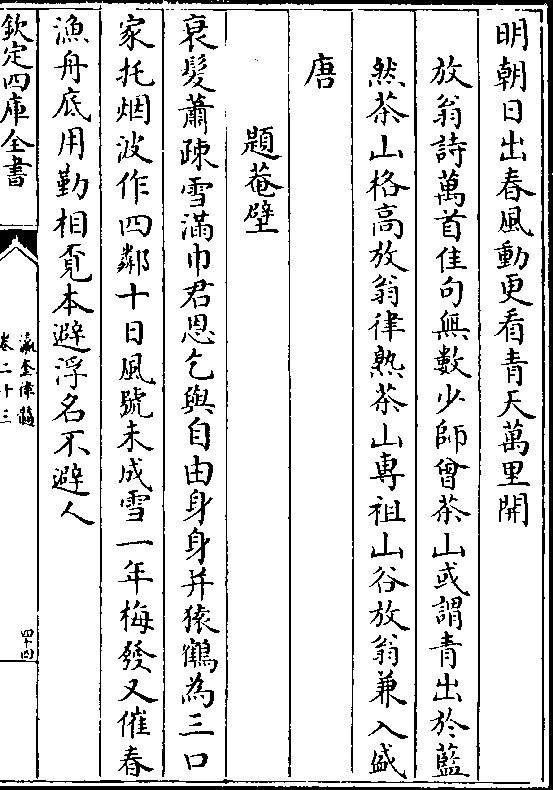 明朝日出春風動更看青天萬里開
放翁詩萬首佳句無數少師曾茶山或謂青出於藍
然茶山格高放翁律熟茶山專祖山谷放翁兼入盛
唐
題菴壁
衰髮蕭疎雪滿巾君恩乞與自由身身并猿鶴為三口
家托烟波作四鄰十日風號未成雪一年梅發又催春
漁舟底用勤相覔本避浮名不避人
欽定四庫全書
瀛奎律髓
卷二十三
四十四